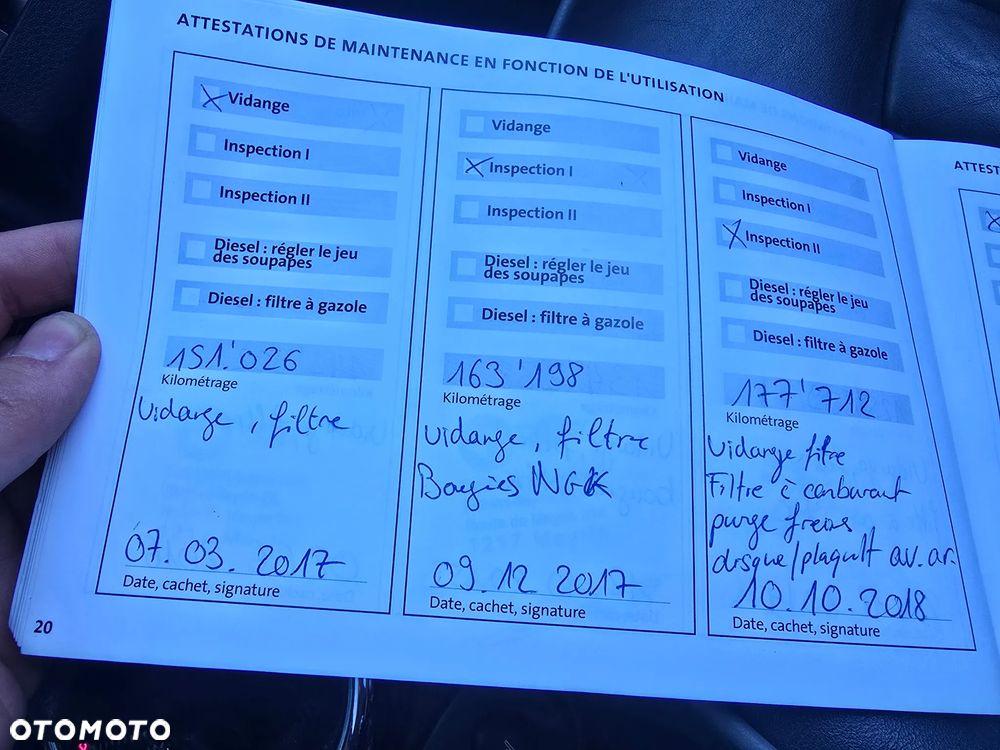 ATTESTATIONS DE MAINTENANCE EN FONCTION DE L'UTILISATION
Vidange
Inspection I
Inspection II
Diesel : régler le jeu
des soupapes
Diesel : filtre à gazole
151'026
Kilométrage
Vidange, filtre
07.03.2017
Date, cachet, signature
Vidange
Inspection I
Inspection II
Diesel : régler le jeu
des soupapes
Diesel : filtre à gazole
163'198
Kilométrage
vidange, filtre
Bougies NGK
09.12 2017
Date, cachet, signature
Vidange
Inspection I
Inspection II
Diesel : régler le jeu
des soupapes
Diesel : filtre à gazole
177'712
Kilométrage
Vidange filtre
Filtre à carburant
purge freins
disque/plaqutt av. ar.
10.10.2018
Date, cachet, signature
20
ATTEST
OTOMOTO